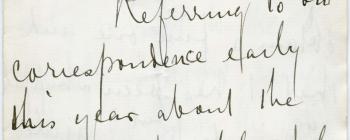 Referring to our
correspondence early
this year about the